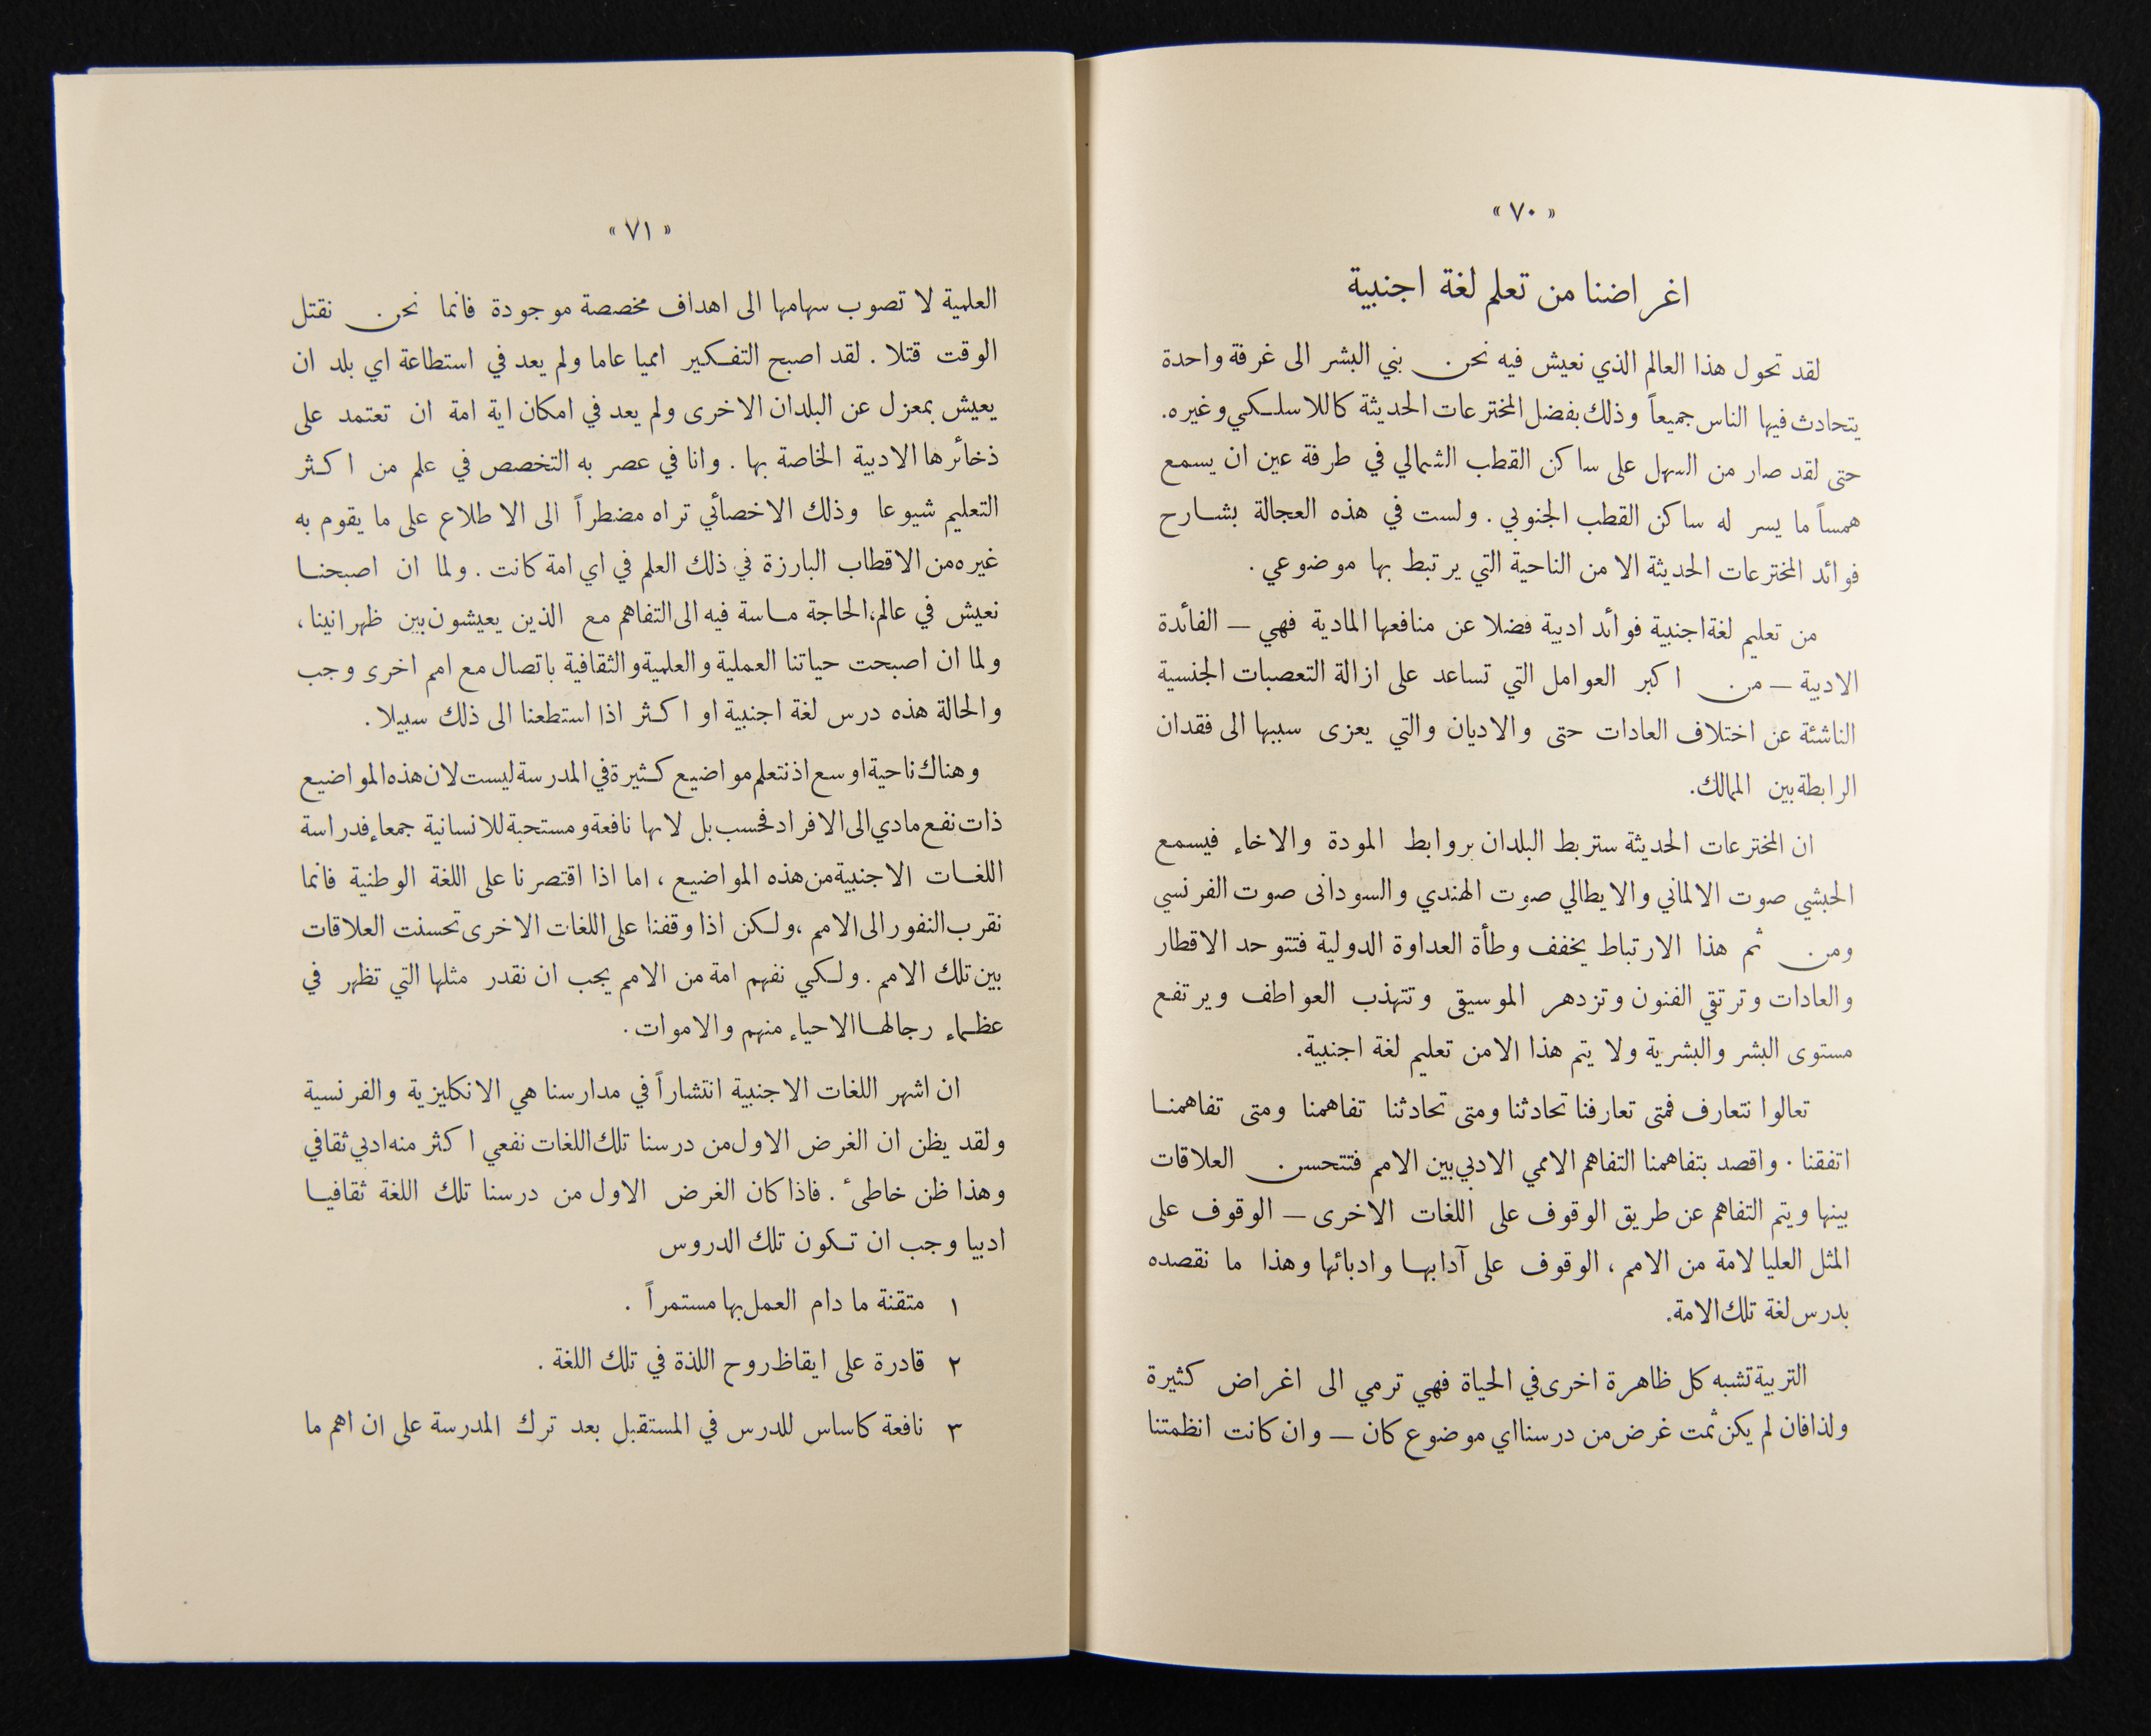 « ٧٠ »
اغراضنا من تعلم لغة اجنبية
لقد تحول هذا العالم الذي نعيش فيه نحن بني البشر الى غرفة واحدة
يتحادث فيها الناس جميعاً وذلك بفضل المخترعات الحديثة كاللاسلكي وغيره.
حتى لقد صار من السهل على ساكن القطب الشمالي في طرفة عين ان يسمع
همساً ما يسر له ساكن القطب الجنوبي . ولست في هذه العجالة بشارح
فوائد المخترعات الحديثة الا من الناحية التي يرتبط بها موضوعي .
من تعليم لغة اجنبية فوائد ادبية فضلا عن منافعها المادية فهي — الفائدة
الادبية — من اكبر العوامل التي تساعد على ازالة التعصبات الجنسية
الناشئة عن اختلاف العادات حتى والاديان والتي يعزى سببها الى فقدان
الرابطة بين الممالك.
ان المخترعات الحديثة ستربط البلدان بروابط المودة والاخاء فيسمع
الحبشي صوت الالماني والايطالي صوت الهندي والسودانى صوت الفرنسي
ومن ثم هذا الارتباط يخفف وطأة العداوة الدولية فتتوحد الاقطار
والعادات وترتقي الفنون وتزدهر الموسيقى وتتهذب العواطف ويرتفع
مستوى البشر والبشرية ولا يتم هذا الامن تعليم لغة اجنبية.
تعالوا نتعارف فمتى تعارفنا تحادثنا ومتى تحادثنا تفاهمنا ومتى تفاهمنا
اتفقنا . واقصد بتفاهمنا التفاهم الاممي الادبي بين الامم فتتحسن العلاقات
بينها ويتم التفاهم عن طريق الوقوف على اللغات الاخرى — الوقوف على
المثل العليا لامة من الامم ، الوقوف على آدابها وادبائها وهذا ما نقصده
بدرس لغة تلك الامة.
التربية تشبه كل ظاهرة اخرى في الحياة فهي ترمي الى اغراض كثيرة
ولذا فان لم يكن ثمت غرض من درسنا اي موضوع كان — وان كانت انظمتنا
« ٧١ »
العلمية لا تصوب سهامها الى اهداف مخصصة موجودة فانما نحن نقتل
الوقت قتلا . لقد اصبح التفكير امميا عاما ولم يعد في استطاعة اي بلد ان
يعيش بمعزل عن البلدان الاخرى ولم يعد في امكان اية امة ان تعتمد على
ذخائرها الادبية الخاصة بها . وانا في عصر به التخصص في علم من اكثر
التعليم شيوعا وذلك الاخصائي تراه مضطراً الى الاطلاع على ما يقوم به
غيره من الاقطاب البارزة في ذلك العلم في اي امة كانت . ولما ان اصبحنا
نعيش في عالم،الحاجة ماسة فيه الى التفاهم مع الذين يعيشون بين ظهرانينا ،
ولما ان اصبحت حياتنا العملية والعلمية والثقافية باتصال مع امم اخرى وجب
والحالة هذه درس لغة اجنبية او اكثر اذا استطعنا الى ذلك سبيلا .
وهناك ناحية اوسع اذ نتعلم مواضيع كثيرة في المدرسة ليست لان هذه المواضيع
ذات نفع مادي الى الافراد فحسب بل لانها نافعة ومستحبة للانسانية جمعاء فدراسة
اللغات الاجنبية من هذه المواضيع ، اما اذا اقتصرنا على اللغة الوطنية فانما
نقرب النفور الى الامم ،ولكن اذا وقفنا على اللغات الاخرى تحسنت العلاقات
بين تلك الامم . ولكي نفهم امة من الامم يجب ان نقدر مثلها التي تظهر في
عظماء رجالها الاحياء منهم والاموات .
ان اشهر اللغات الاجنبية انتشاراً في مدارسنا هي الانكليزية والفرنسية
ولقد يظن ان الغرض الاول من درسنا تلك اللغات نفعي اكثر منه ادبي ثقافي
وهذا ظن خاطىء . فاذا كان الغرض الاول من درسنا تلك اللغة ثقافيا
ادبيا وجب ان تكون تلك الدروس
١ متقنة ما دام العمل بها مستمراً .
٢ قادرة على ايقاظ روح اللذة في تلك اللغة .
٣ نافعة كاساس للدرس في المستقبل بعد ترك المدرسة على ان اهم ما